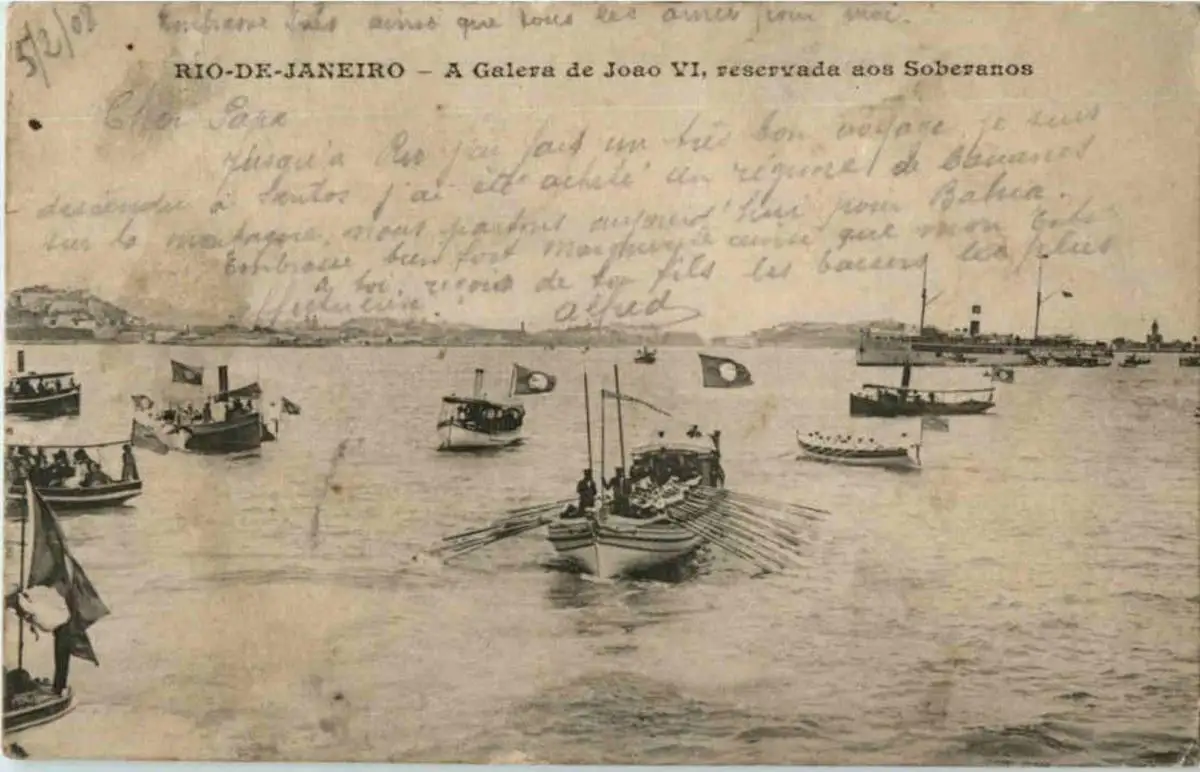 5/2/08
Embrasse Inès ainsi que tous les amis pour moi.
RIO-DE-JANEIRO – A Galera de Joao VI, reservada aos Soberanos
Cher Papa
Jusqu'à Rio j'ai fait un très bon voyage, je suis
descendu à Santos j'ai été acheté un régime de bananes
sur la montagne, nous partons aujourd'hui pour Bahia.
Embrasse bien fort ainsi que mon
à toi, reçois de ton fils les baisers les plus
Alfred